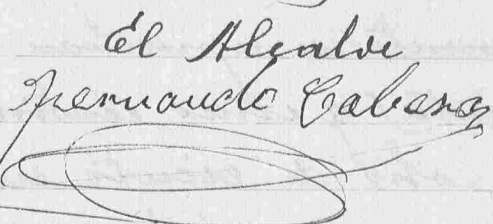 El Alcalde
Fernando Cabezas